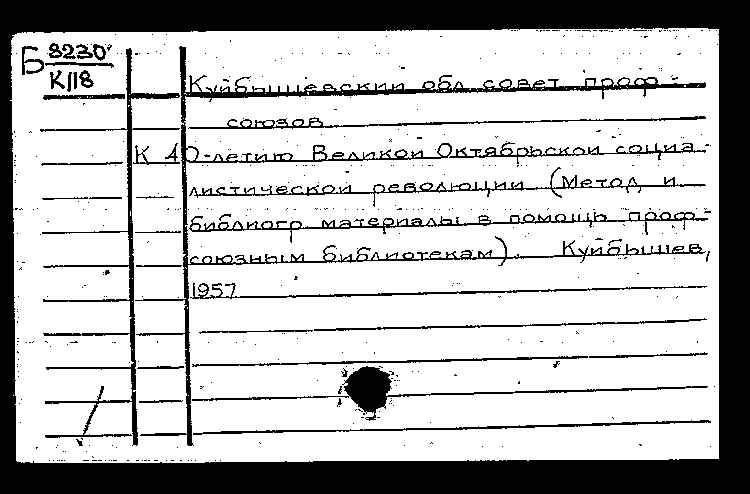 Б 8230
К118
Куйбышевский обл совет проф-
союзов
К 40-летию Великой Октябрьской социа-
листической революции (Метод и
библиогр материалы в помощь проф-
союзным библиотекам). Куйбышев,
1957